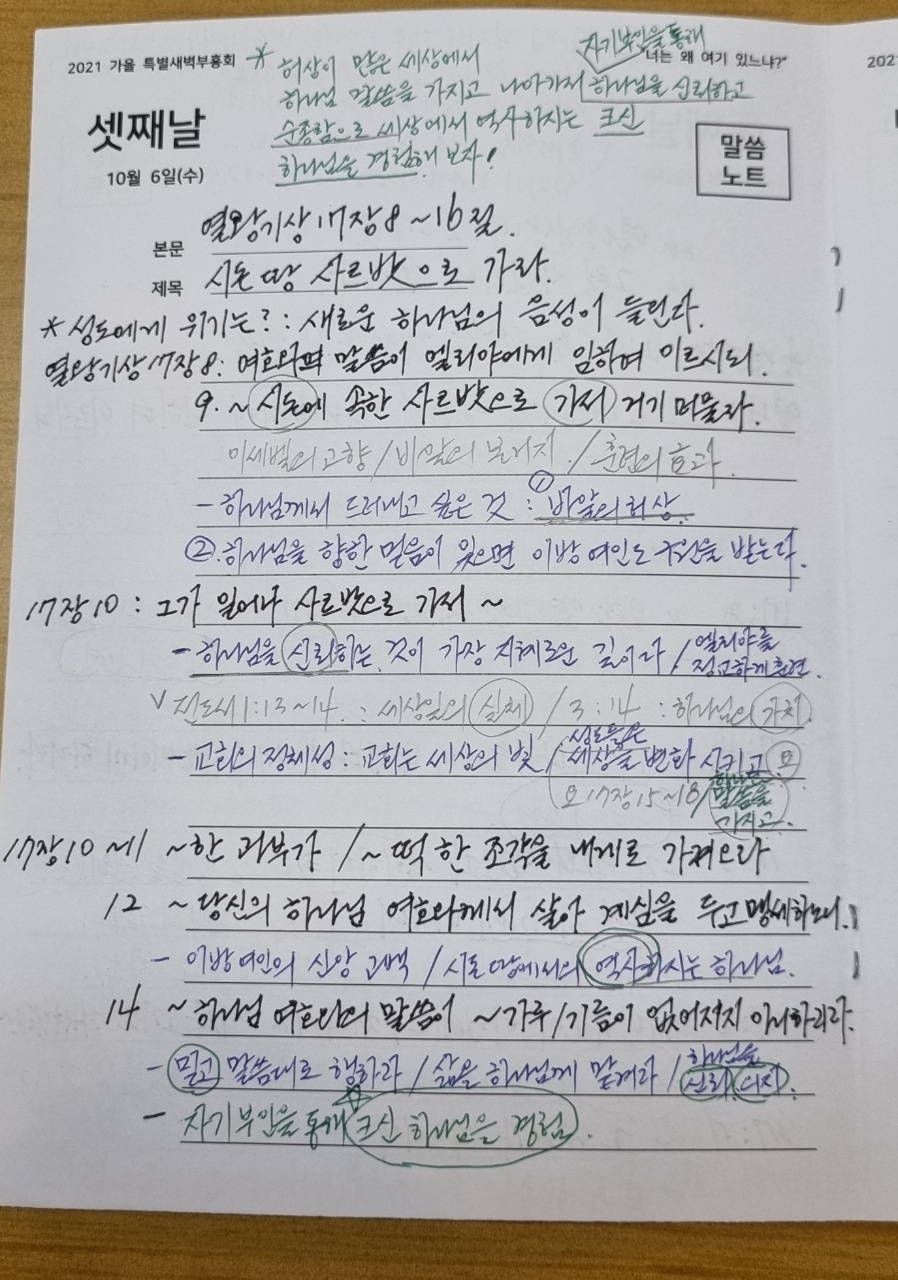 2021 가을 특별새벽부흥회
"너는 왜 여기 있느냐?"
202
자기부인을 통해
* 허상이 많은 세상에서
하나님 말씀을 가지고 나아가서 하나님을 신뢰하고
순종함으로 세상에서 역사하시는 크신
하나님을 경험해 보자!
셋째날
10월 6일(수)
말씀
노트
본문 열왕기상 17장 8~16절.
제목 시돈 땅 사르밧으로 가라.
* 성도에게 위기는? : 새로운 하나님의 음성이 들린다.
열왕기상 17장 8: 여호와의 말씀이 엘리야에게 임하여 이르시되.
9. ~ 시돈에 속한 사르밧으로 가서 거기 머물라.
이세벨의 고향 / 바알의 본거지. / 훈련의 효과.
- 하나님께서 드러내고 싶은 것 : ① 바알의 허상.
②. 하나님을 향한 믿음이 있으면 이방 여인도 구원을 받는다.
17장 10 : 그가 일어나 사르밧으로 가서 ~
- 하나님을 신뢰하는 것이 가장 지혜로운 길이라 / 엘리야를
정교하게 훈련.
V 전도서 1:13~14. : 세상일의 실체 / 3:14 : 하나님의 가치
- 교회의 정체성 : 교회는 세상의 빛 / 성도들은
세상을 변화 시키고
요 17장 15~18 / 하나님
말씀을
가지고.
17장 10~11 ~한 과부가 / ~ 떡 한 조각을 내게로 가져오라
12 ~ 당신의 하나님 여호와께서 살아 계심을 두고 맹세하노니.
- 이방여인의 신앙 고백 / 시돈 땅에서의 역사하시는 하나님.
14 ~ 하나님 여호와의 말씀이 ~ 가루 / 기름이 없어지지 아니하리라.
- 믿고 말씀대로 행하라 / 삶을 하나님께 맡겨라 / 하나님을
신뢰
- 자기부인을 통해 크신 하나님을 경험.